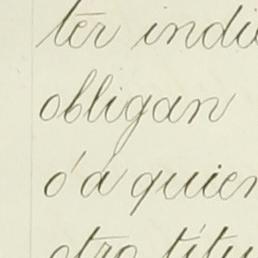 ter indi
obligan
ó á quien
otro titu